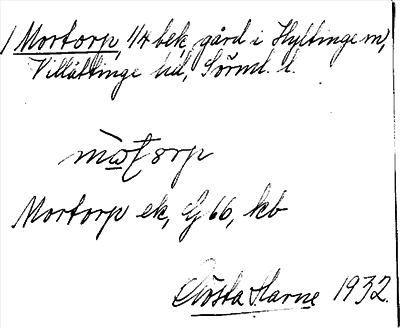 1 Mortorp, 1/4 bek, gård i Hyltinge sn,
Villåttinge hd, Sörml. l.
Mortorp ek, G 66, kb
Gösta Harne 1932.